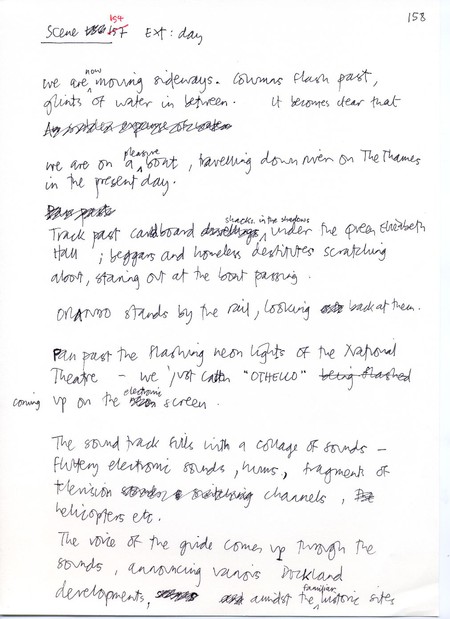 158
154
Scene 156 157 Ext: day
we are now moving sideways. Columns flash past,
glints of water in between. It becomes clear that
we are on a pleasure boat, travelling down river on The Thames
in the present day.
Track past cardboard shacks in the shadows, under the Queen Elizabeth
Hall ; beggars and homeless destitutes scratching
about, staring out at the boat passing.
ORLANDO stands by the rail, looking back at them.
Pan past the flashing neon lights of the National
Theatre - we just catch "OTHELLO" being flashed
coming up on the electronic screen.
The sound track fills with a collage of sounds -
fluttery electronic sounds, hums, fragments of
television channels,
helicopters etc.
The voice of the guide comes up through the
sounds, announcing various Dockland
developments, amidst the familiar historic sites